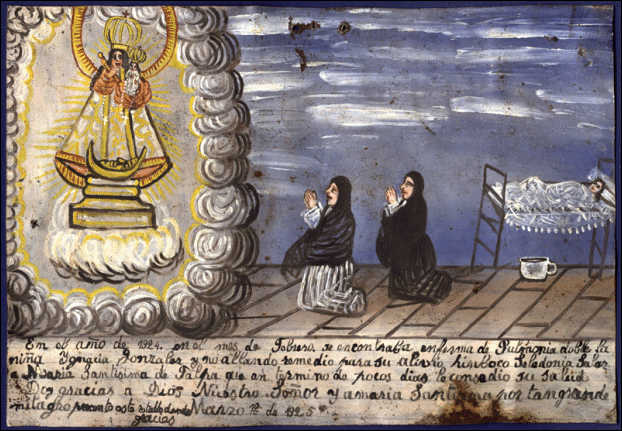 En el año de 1924. en el mes de Febrero se encontraba enferma de Pulmonia doble la
niña Ygnacia Gonzalez y no allando remedio para su alivio Seledonia Salas
a Maria Santisima de que en término de pocos dias le consedio su salud
Doy gracias a Dios Nuestro Señor y amaria Santisima por tan grande
milagro presento este retablo dando Marzo 1º de 1925
gracias